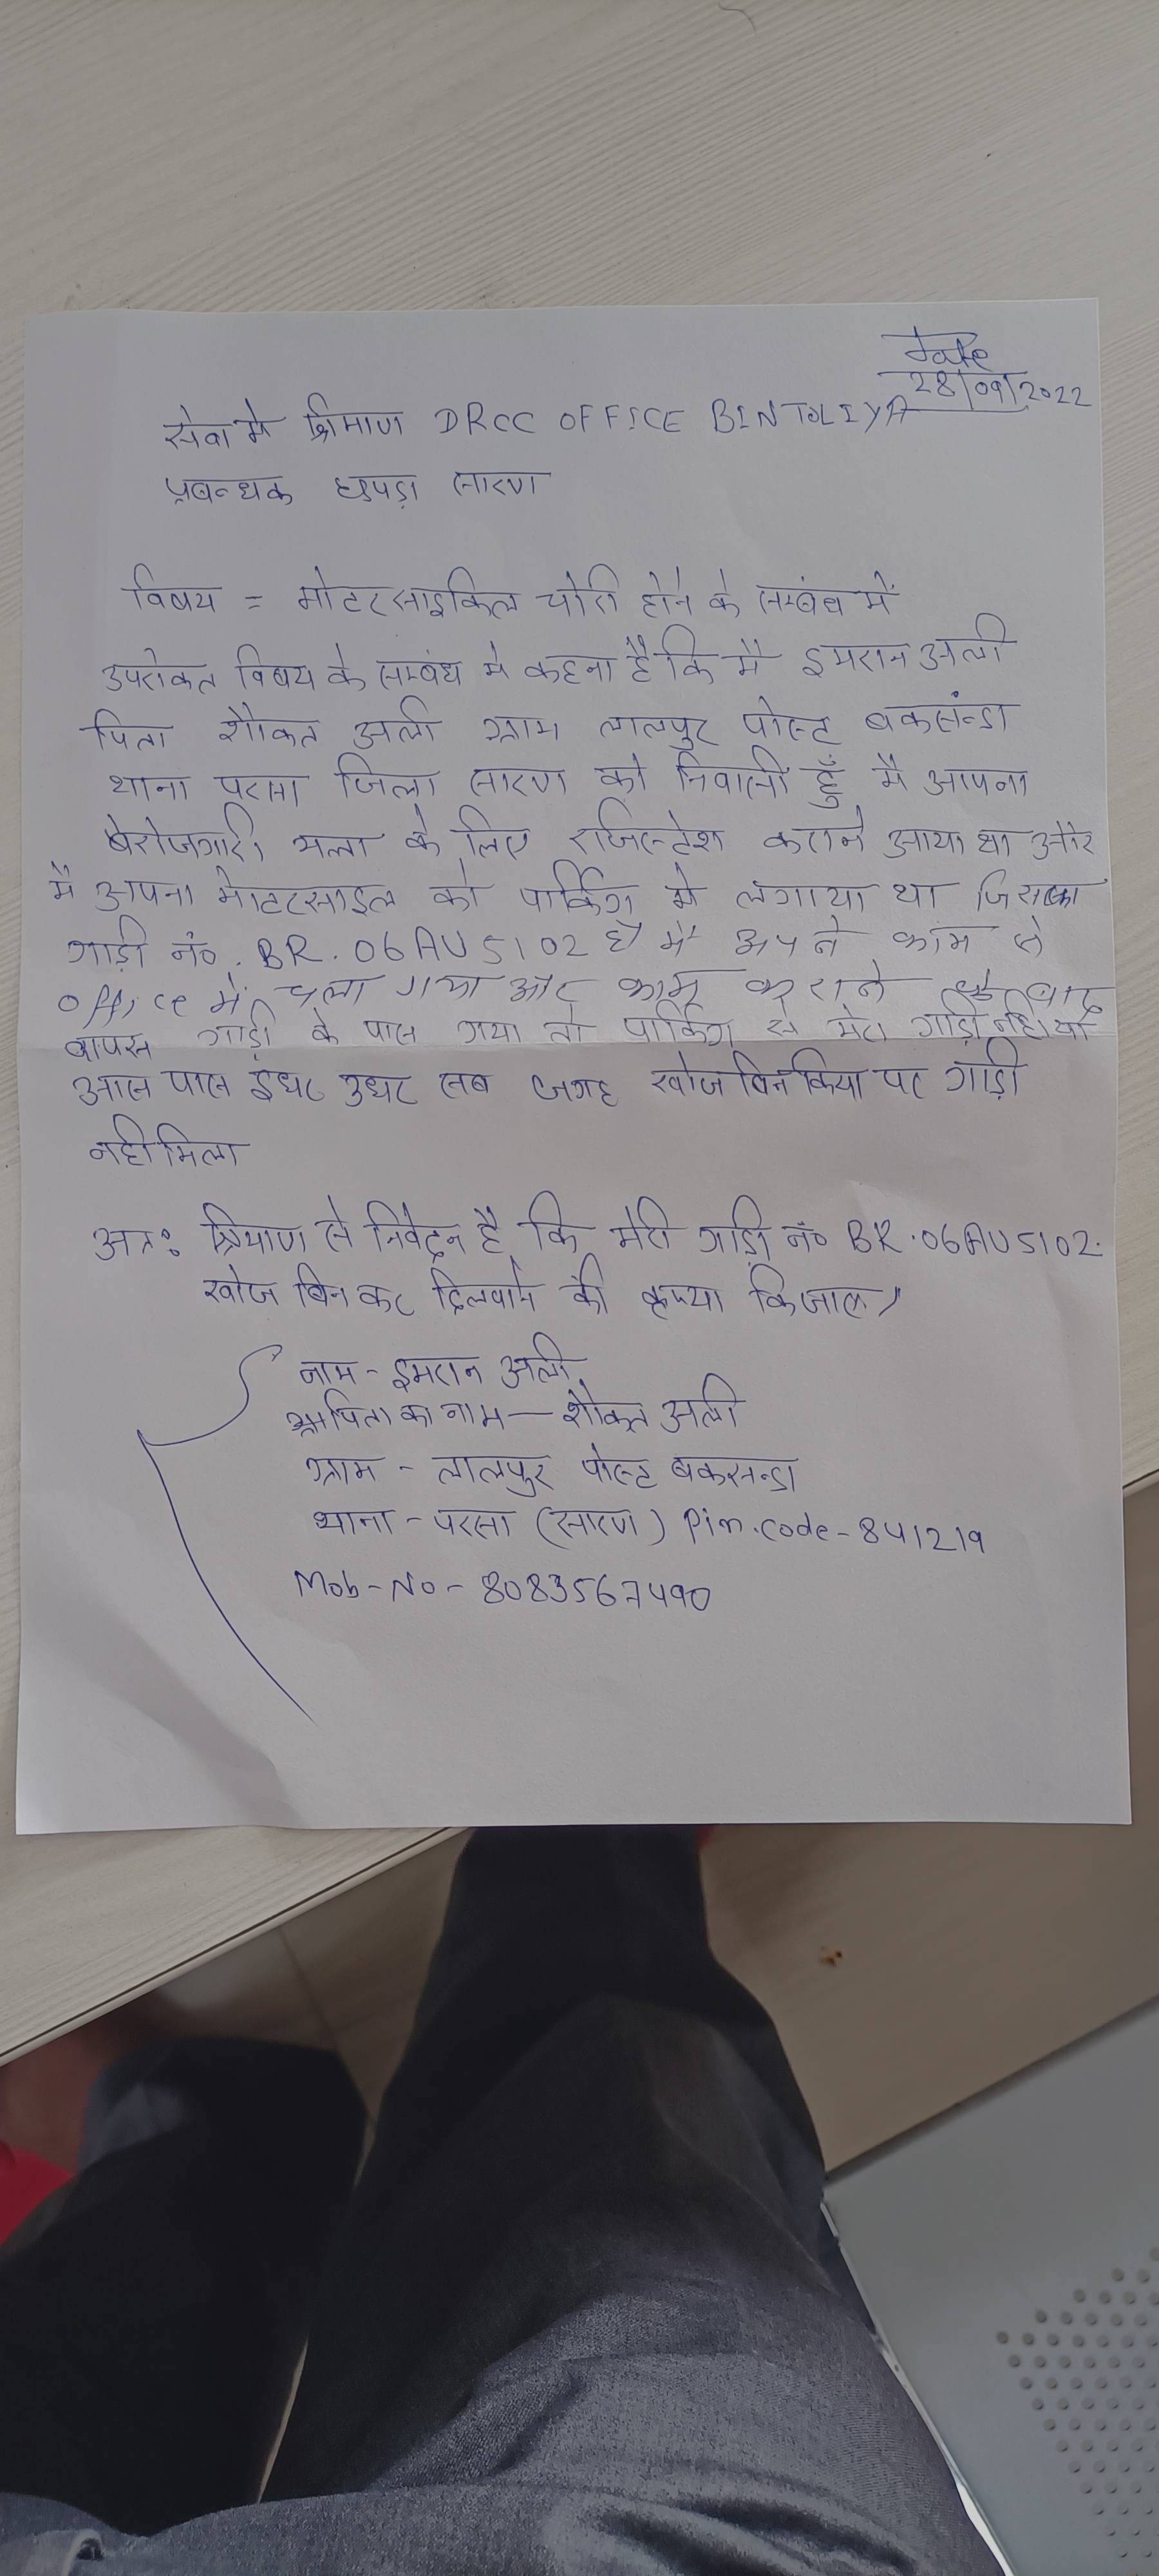 Date
28/09/2022
सेवा मे श्रिमाण DRCC OFFICE BINTOLIYA
प्रबन्धक छपड़ा सारण
विषय = मोटरसाइकिल चोरी होने के सम्बंध में
उपरोक्त विषय के सम्बंध मे कहना है कि मै इमरान अली
पिता शौकत अली ग्राम लालपुर पोस्ट बकसंन्डा
थाना परसा जिला सारण को निवासी हूँ मै आपना
बेरोजगारी भत्ता के लिए रजिस्टेश कराने आया था और
मै अपना मोटरसाइल को पार्किग मे लगाया था जिसका
गाड़ी नं०. BR. 06AU5102 है मै अपने काम से
office में चला गया और काम कराने के बाद
वापस गाड़ी के पास गया तो पार्किग से मेरा गाड़ी नही था
आस पास इधर उधर सब जगह खोज बिन किया पर गाड़ी
नही मिला
अतः श्रिमाण से निवेदन है कि मेरी गाड़ी नं० BR.06AU5102.
खोज बिन कर दिलवाने की कृप्या किजाए।
नाम - इमरान अली
पिता का नाम — शौकत अली
ग्राम - लालपुर पोस्ट बकसन्डा
थाना - परसा (सारण) Pin.code - 841219
Mob-No - 8083567490